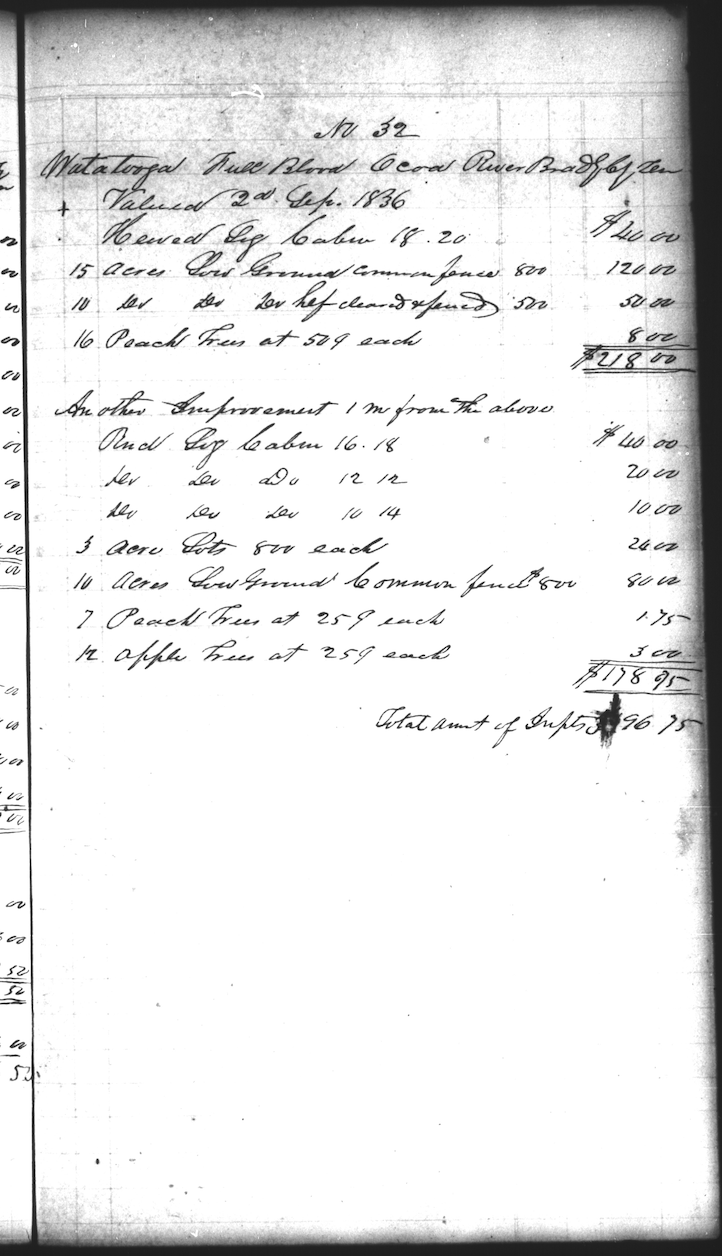 No 32
Watatooga Full Blood Ocoa River Brad Co Ten
+ Valued 2d Sep. 1836
Hewed Log Cabin 18. 20 $40 00
15 acres Low Ground common fence 800 120 00
10 Do Do Do hef cleared & fenced 500 50 00
16 Peach Trees at 50¢ each 8 00
$218 00
Another Improvement 1 m from the above
Rnd Log Cabin 16. 18 $40 00
Do Do Do 12 12 20 00
Do Do Do 10 14 10 00
3 acre Lots 800 each 24 00
10 acres Low Ground Common fence $800 80 00
7 Peach Trees at 25¢ each 1.75
12 apple Trees at 25¢ each 3 00
$178 75
Total amt of Impts 396.75